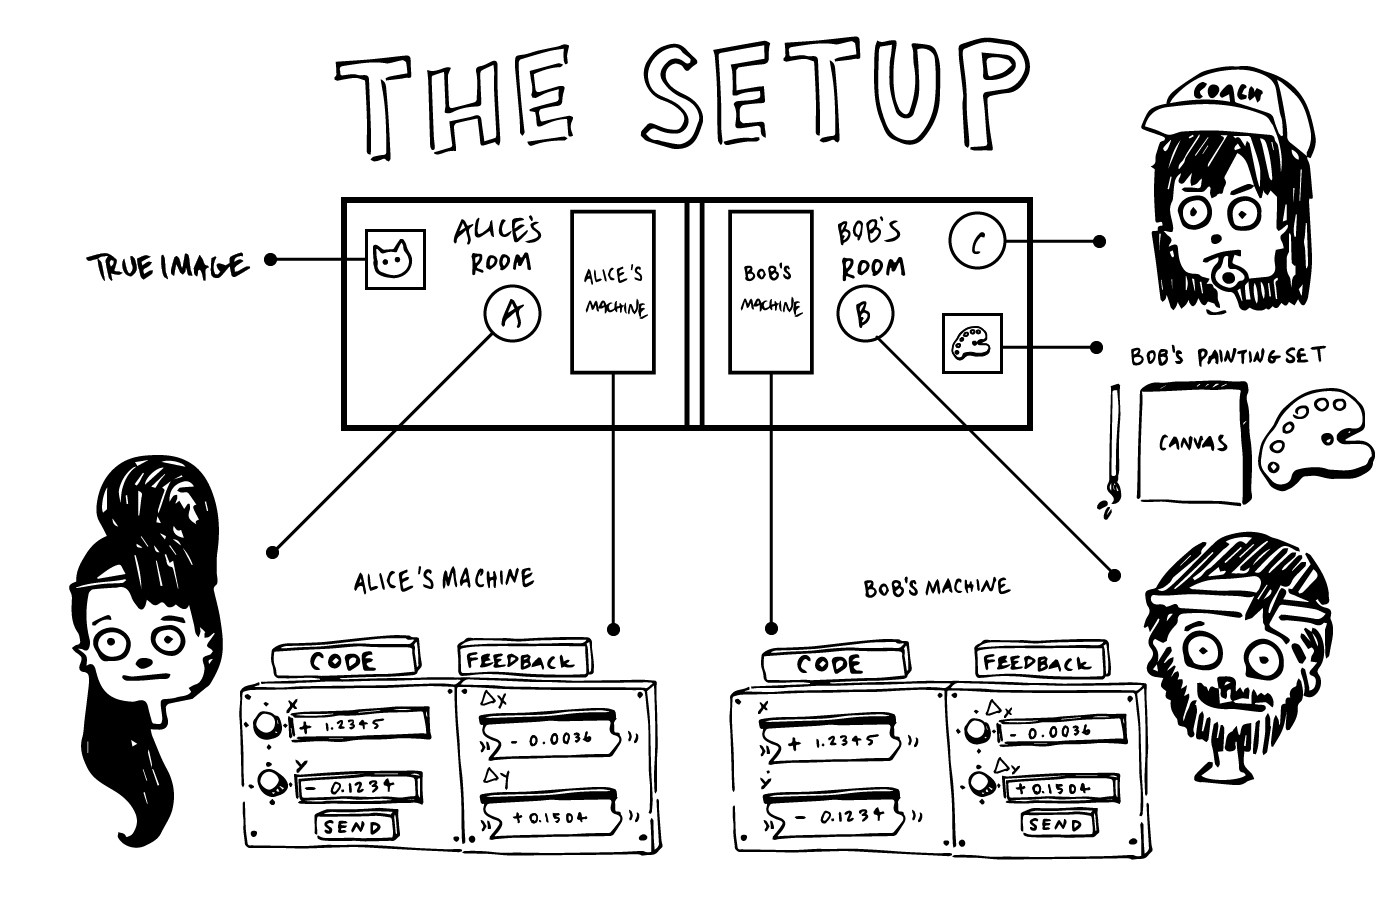 THE SETUP
COACH
TRUE IMAGE
ALICE'S
ROOM
A
ALICE'S
MACHINE
BOB'S
MACHINE
BOB'S
ROOM
B
C
BOB'S PAINTING SET
CANVAS
ALICE'S MACHINE
CODE
FEEDBACK
X
+ 1.2345
Y
- 0.1234
SEND
△X
- 0.0036
△Y
+0.1504
BOB'S MACHINE
CODE
FEEDBACK
X
+ 1.2345
Y
- 0.1234
△X
- 0.0036
△Y
+0.1504
SEND